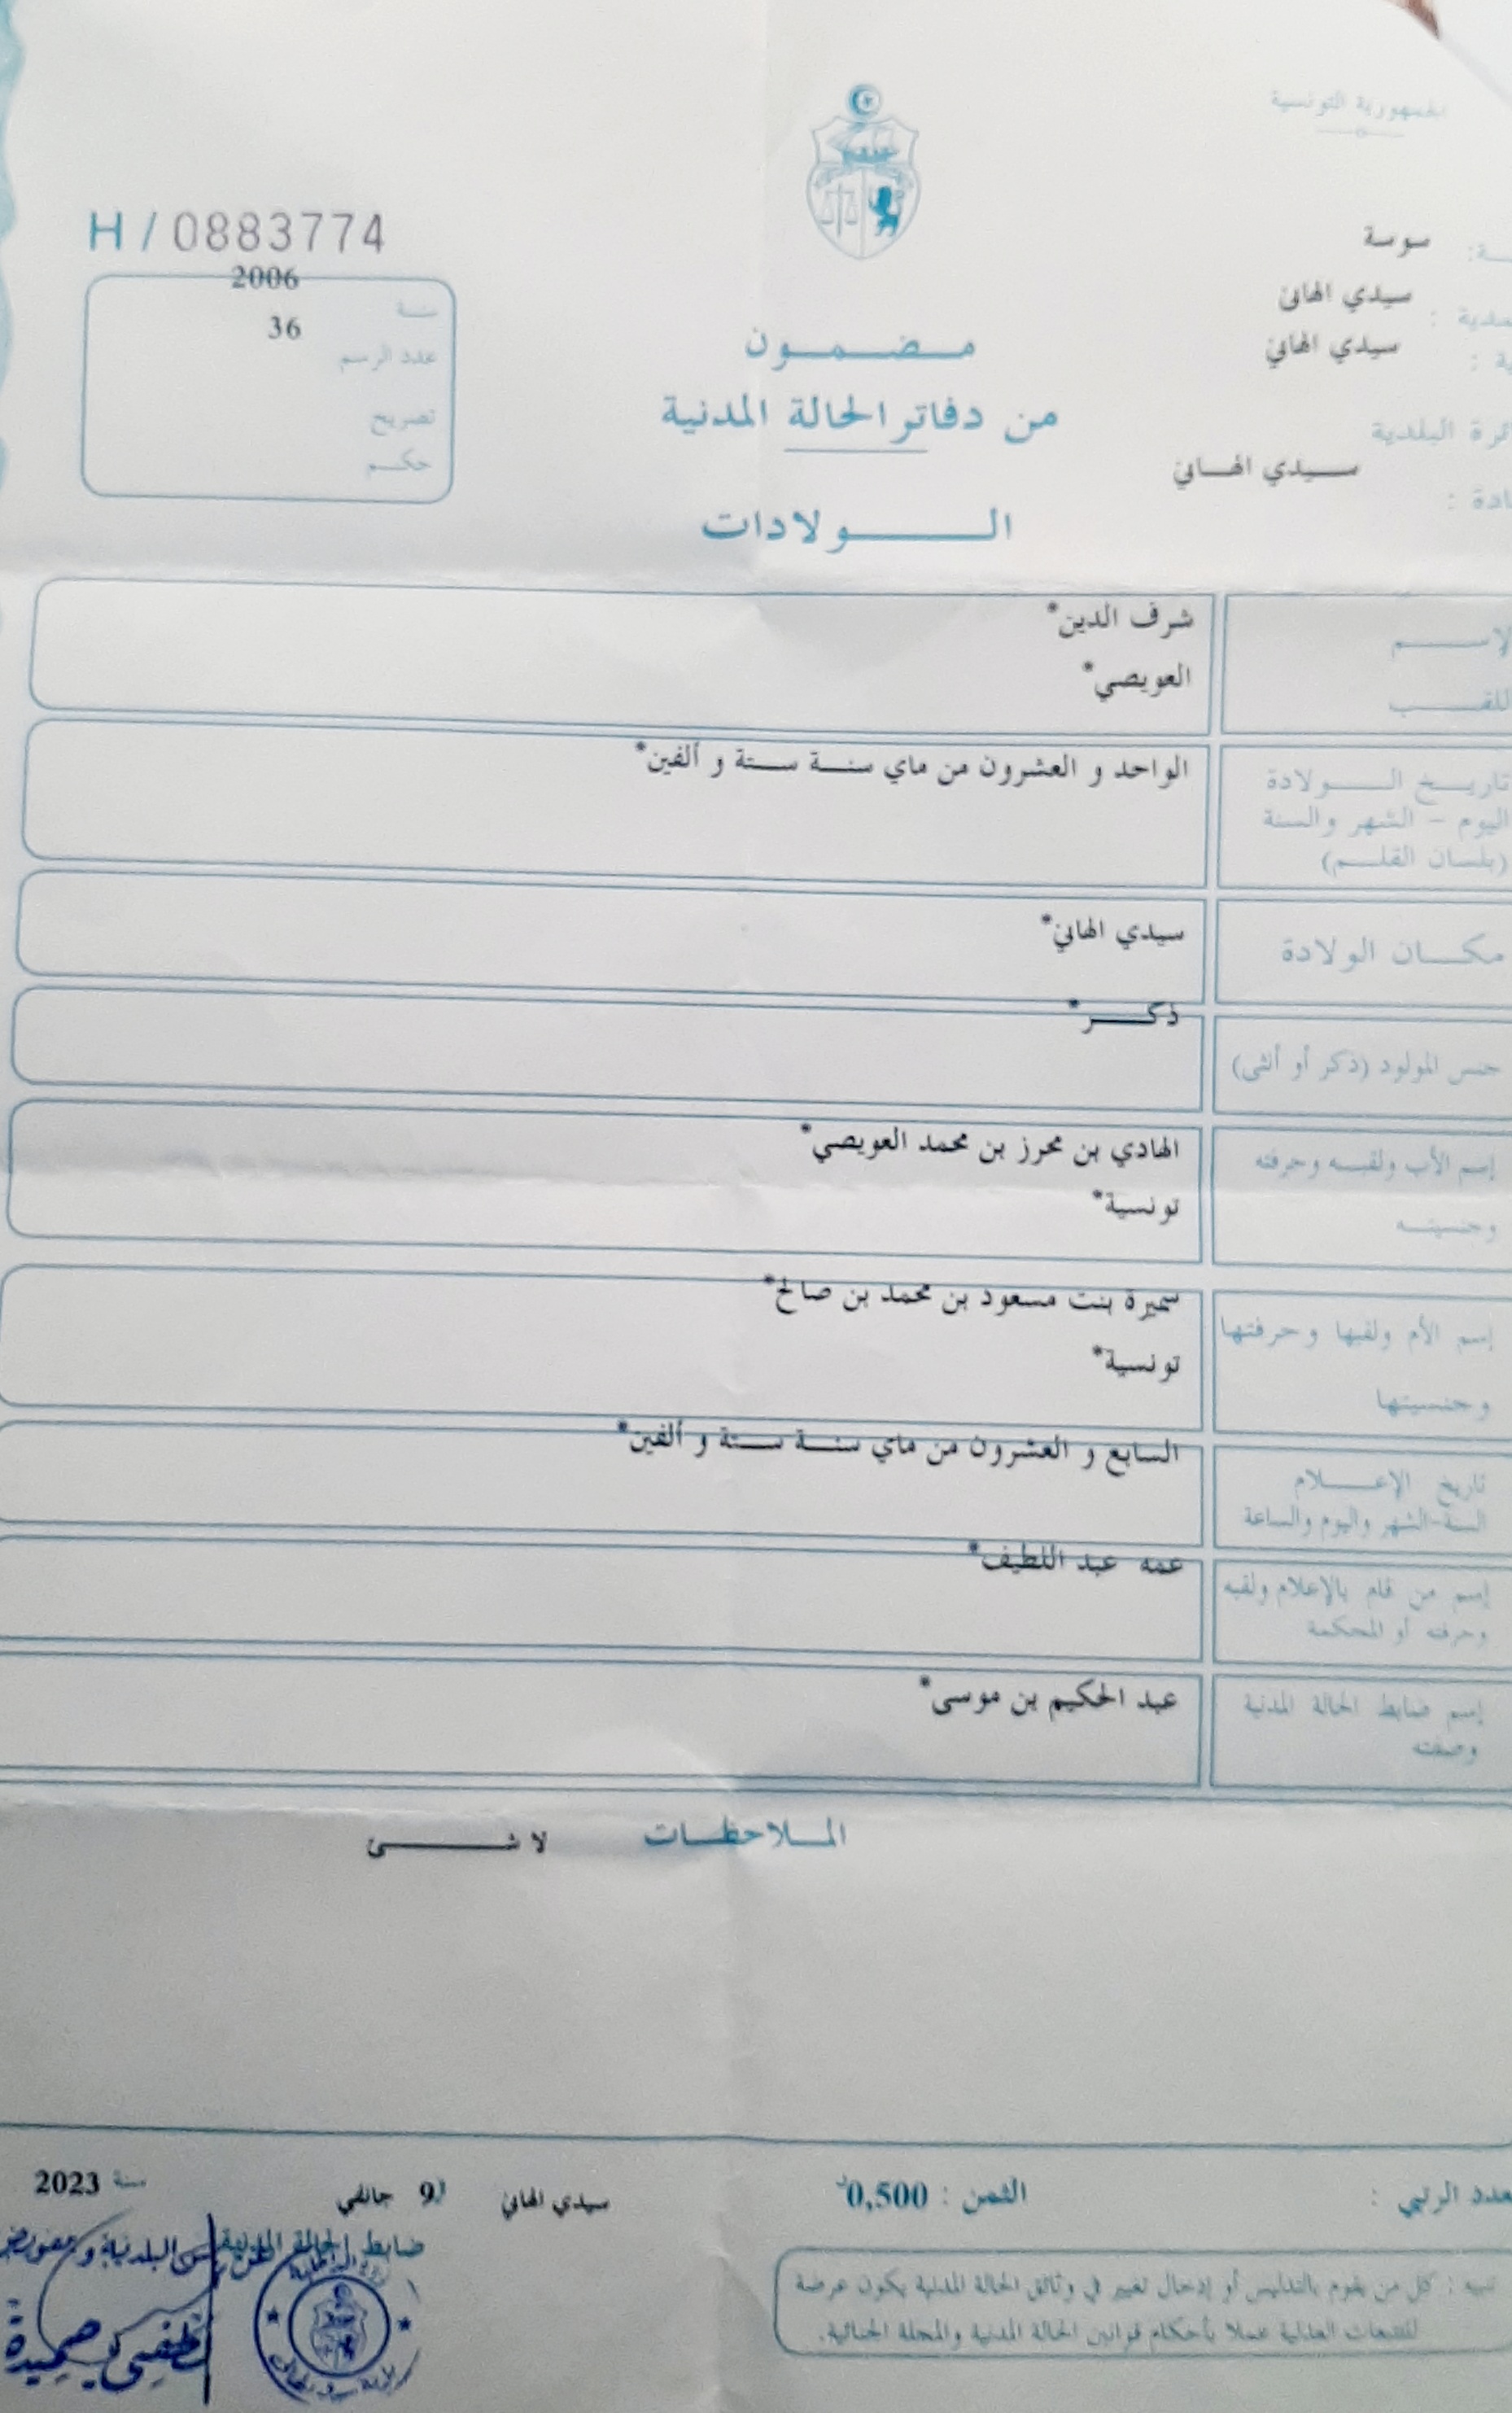 الجمهورية التونسية
سوسة
سيدي الهاني
سيدي الهاني
البلدية
سيدي الهاني
H / 0883774
سنة 2006
عدد الرسم 36
تصريح
حكم
مضمون
من دفاتر الحالة المدنية
الولادات
الإسم شرف الدين*
اللقب العويصي*
تاريخ الولادة الواحد و العشرون من ماي سنة ستة و ألفين*
اليوم - الشهر والسنة
(بلسان القلم)
مكان الولادة سيدي الهاني*
جنس المولود (ذكر أو أنثى) ذكر*
إسم الأب ولقبه وحرفته الهادي بن محرز بن محمد العويصي*
وجنسيته تونسية*
إسم الأم ولقبها وحرفتها سميرة بنت مسعود بن محمد بن صالح*
وجنسيتها تونسية*
تاريخ الإعلام السابع و العشرون من ماي سنة ستة و ألفين*
السنة-الشهر واليوم والساعة
إسم من قام بالإعلام ولقبه عمه عبد اللطيف*
وحرفته أو المحكمة
إسم ضابط الحالة المدنية عبد الحكيم بن موسى*
وصفته
الملاحظات لا شئ
عدد الرتبي :
الثمن : 0,500د
سيدي الهاني 9 جانفي سنة 2023
ضابط الحالة المدنية
تنبيه : كل من يقوم بالتدليس أو إدخال تغيير في وثائق الحالة المدنية يكون عرضة
للتتبعات العدلية عملا بأحكام قوانين الحالة المدنية والمجلة الجنائية.